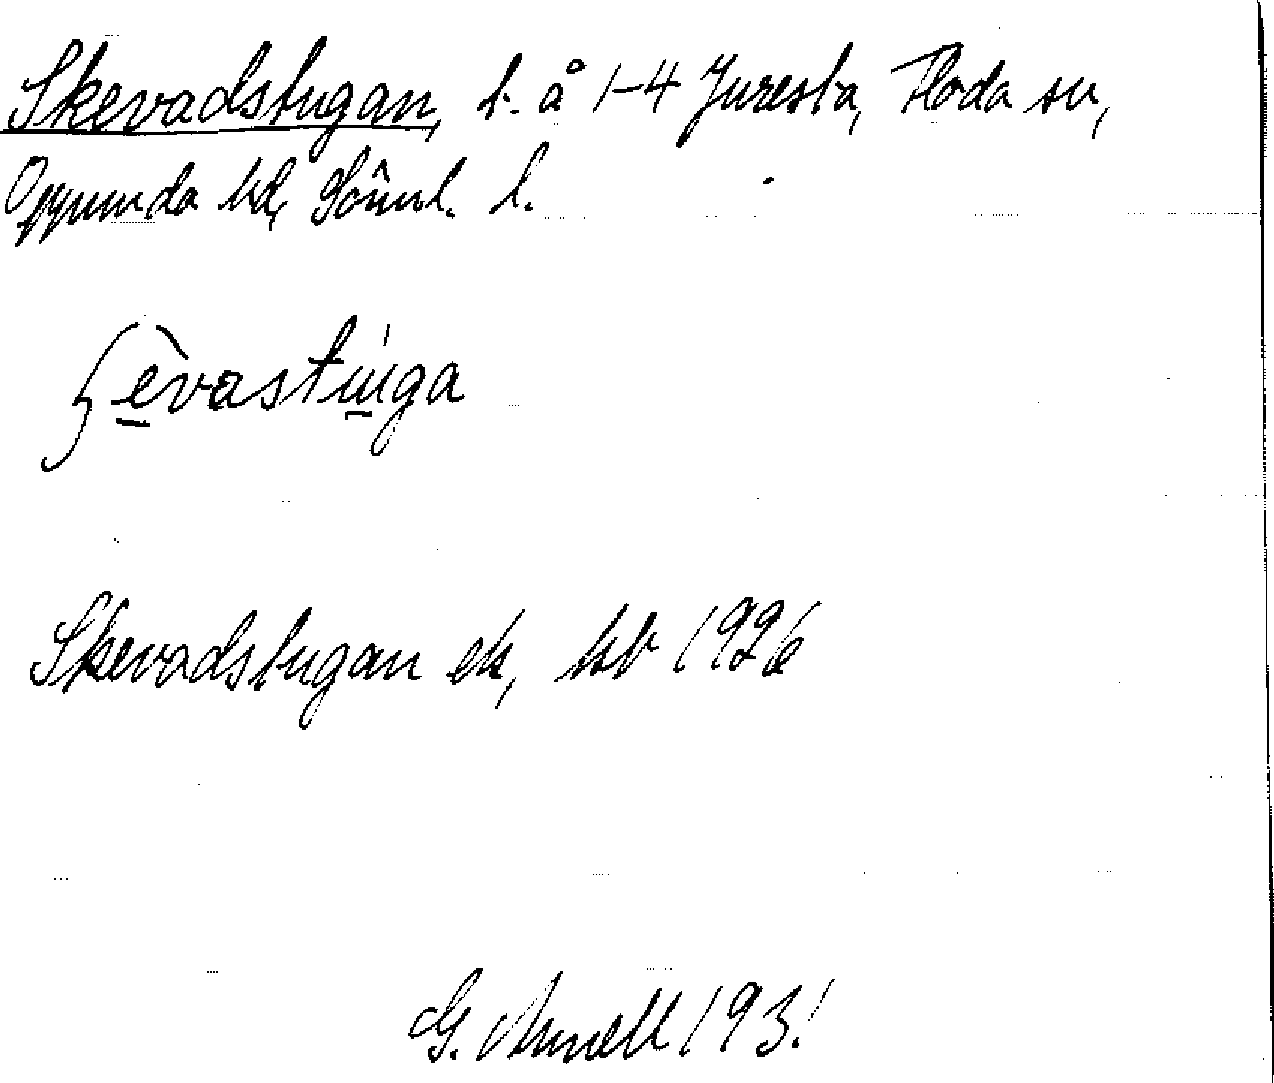 Skevadstugan, t. å 1-4 Juresta, Floda sn,
Oppunda hd, Söml. l.
ʃèvastúga
Skevadstugan ek, hb 1926
G. Arnell 1931